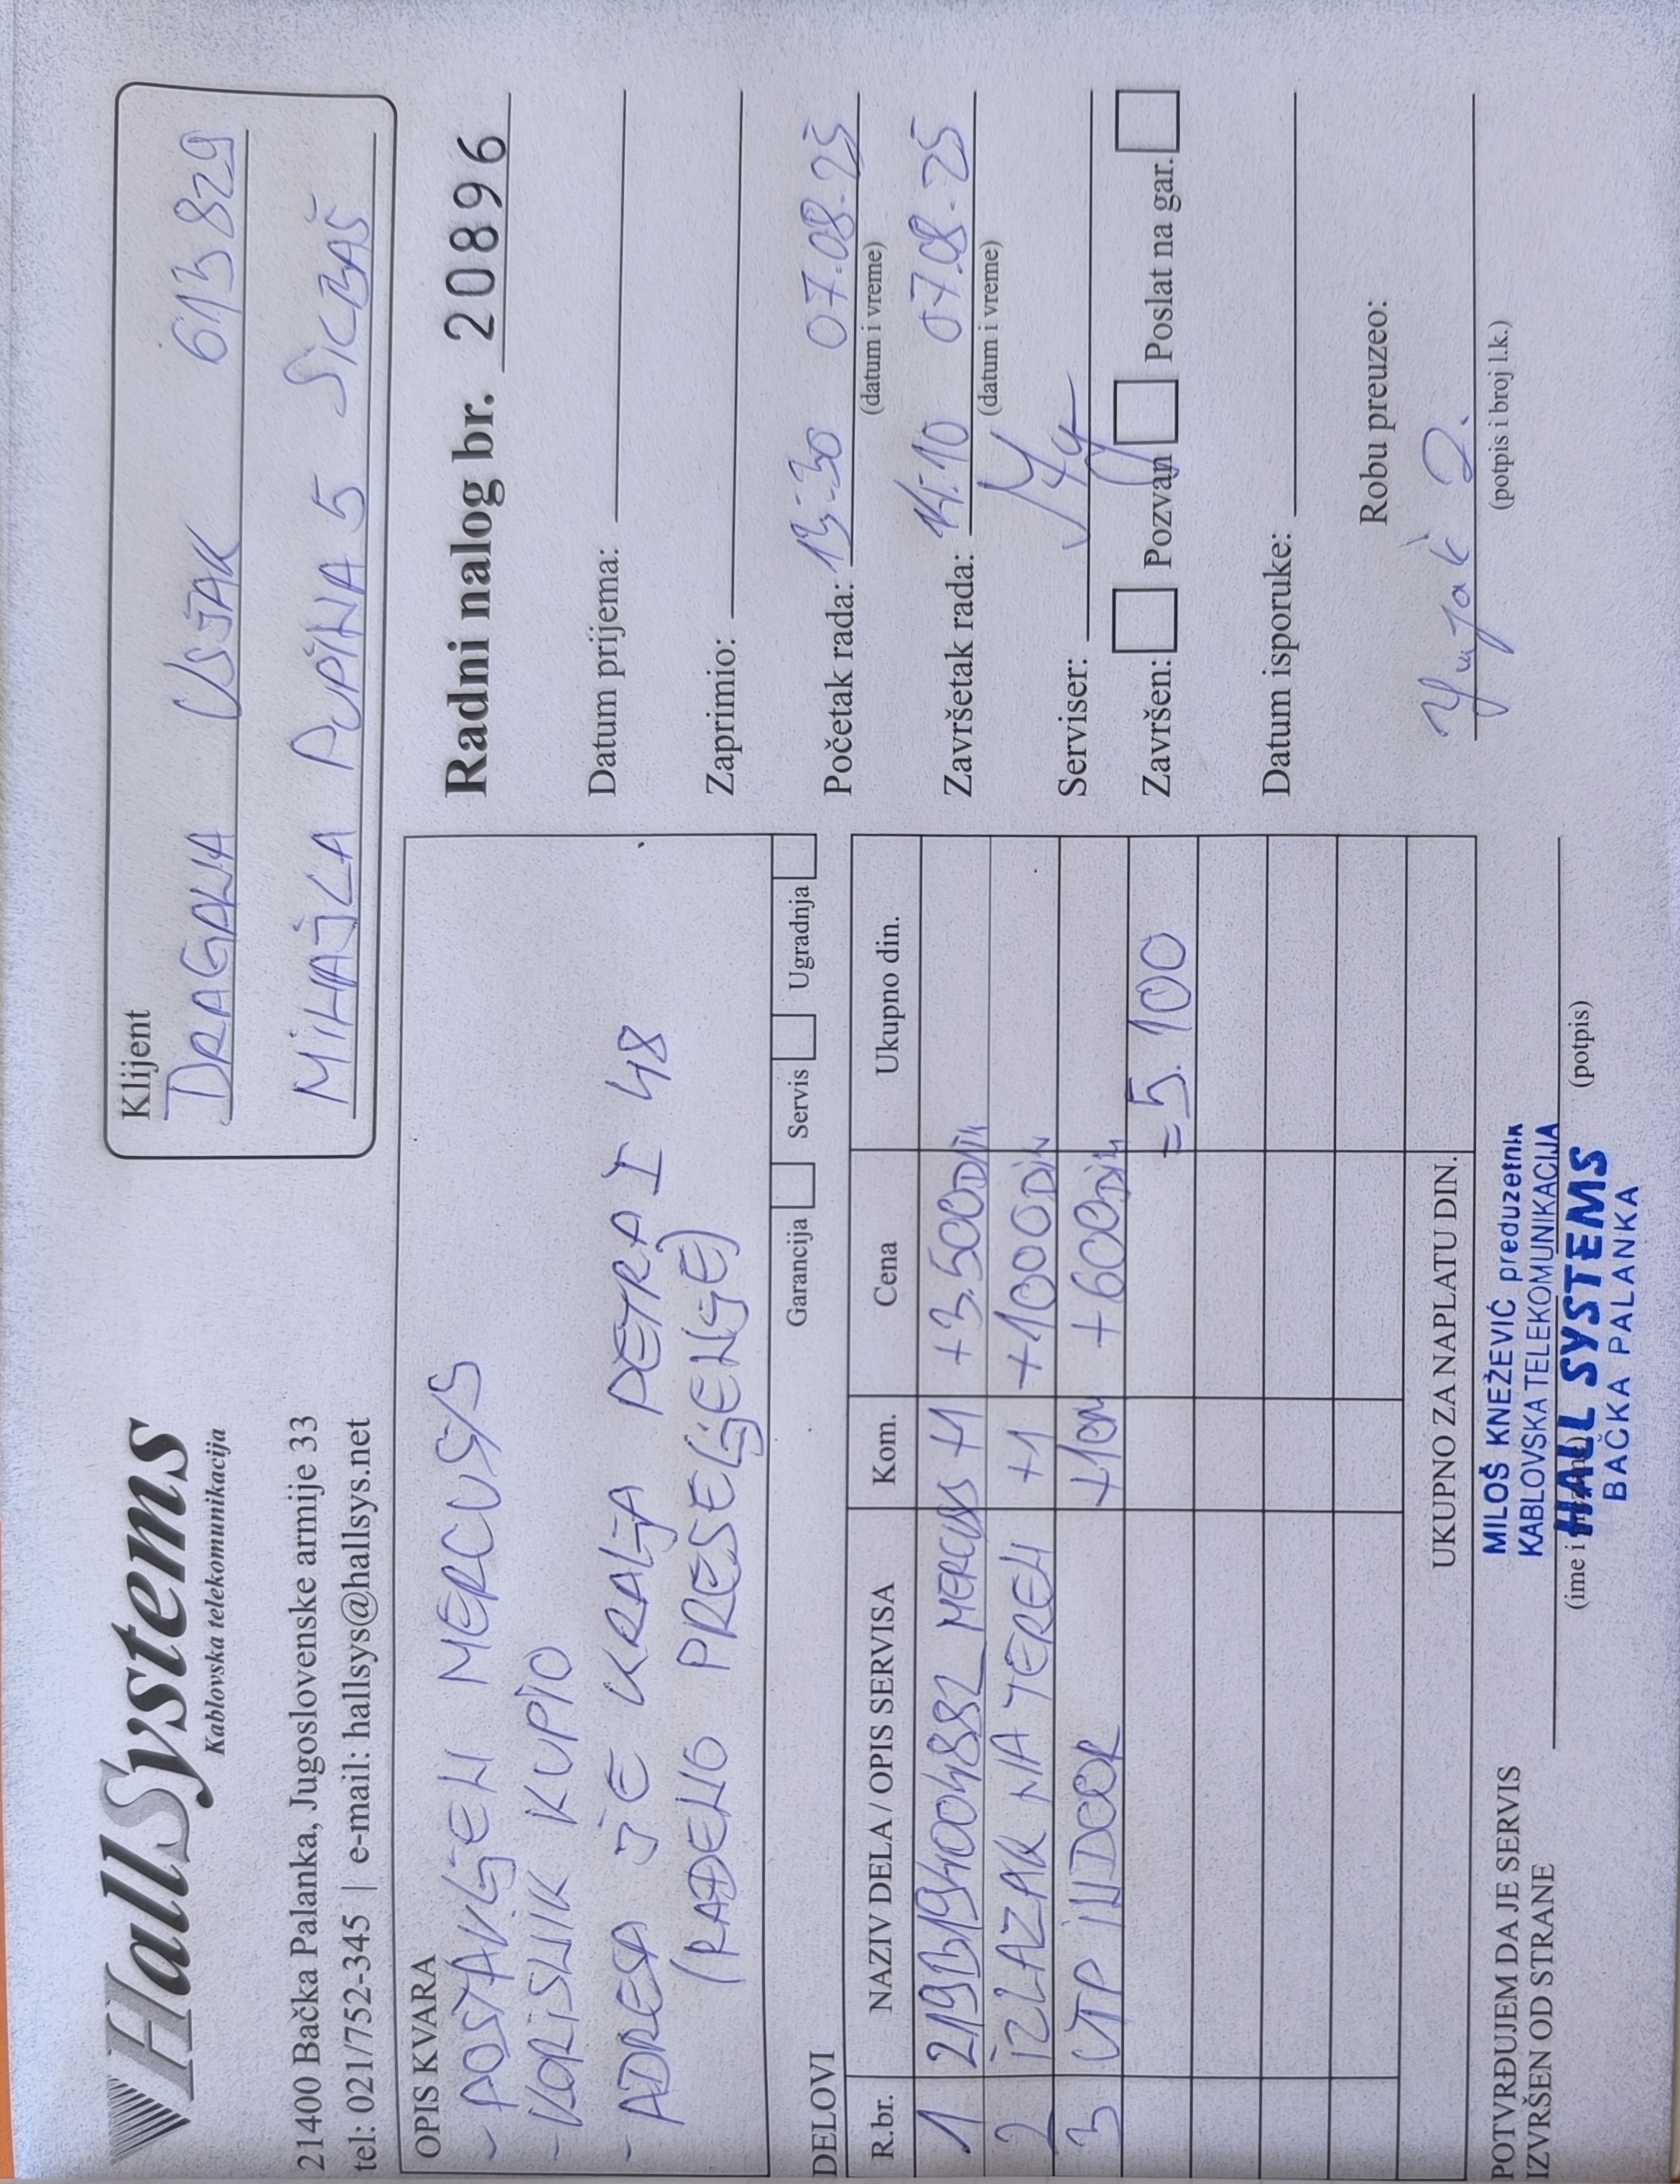 HallSystems
Kablovska telekomunikacija
21400 Bačka Palanka, Jugoslovenske armije 33
tel: 021/752-345 | e-mail: hallsys@hallsys.net
Klijent
DRAGANA USJAK 613829
MIHAJLA PUPINA 5 SILBAŠ
OPIS KVARA
- POSTAVLJEN MERCUSYS
- KORISNIK KUPIO
- ADRESA JE KRALJA PETRA I 48
(RAĐENO PRESELJENJE)
Garancija Servis Ugradnja
Radni nalog br. 20896
Datum prijema:
Zaprimio:
Početak rada: 13:30 07.08.25
(datum i vreme)
Završetak rada: 14:10 07.08.25
(datum i vreme)
Serviser:
Završen: Pozvan Poslat na gar.
Datum isporuke:
Robu preuzeo:
(potpis i broj l.k.)
DELOVI
R.br. NAZIV DELA / OPIS SERVISA Kom. Cena Ukupno din.
1 MERCUSYS +1 +3.500DIN
2 IZLAZAK NA TEREN +1 +1000DIN
3 UTP INDOOR +10m +600DIN
=5.100
UKUPNO ZA NAPLATU DIN.
POTVRĐUJEM DA JE SERVIS
IZVRŠEN OD STRANE
(ime i
(potpis)
MILOŠ KNEŽEVIĆ preduzetnik
KABLOVSKA TELEKOMUNIKACIJA
HALL SYSTEMS
BAČKA PALANKA